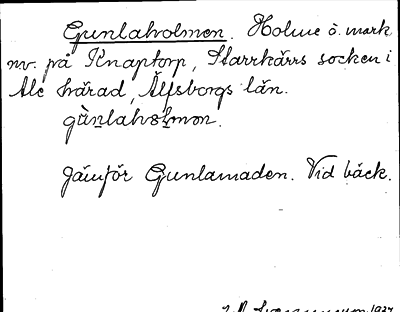 Gunlaholmen. Holme ö. mark
nv. på Knaptorp, Starrkärrs socken i
Ale härad, Älfsborgs län.
gùnlahòlmən.
Jämför Gunlamaden. Vid bäck.
1927